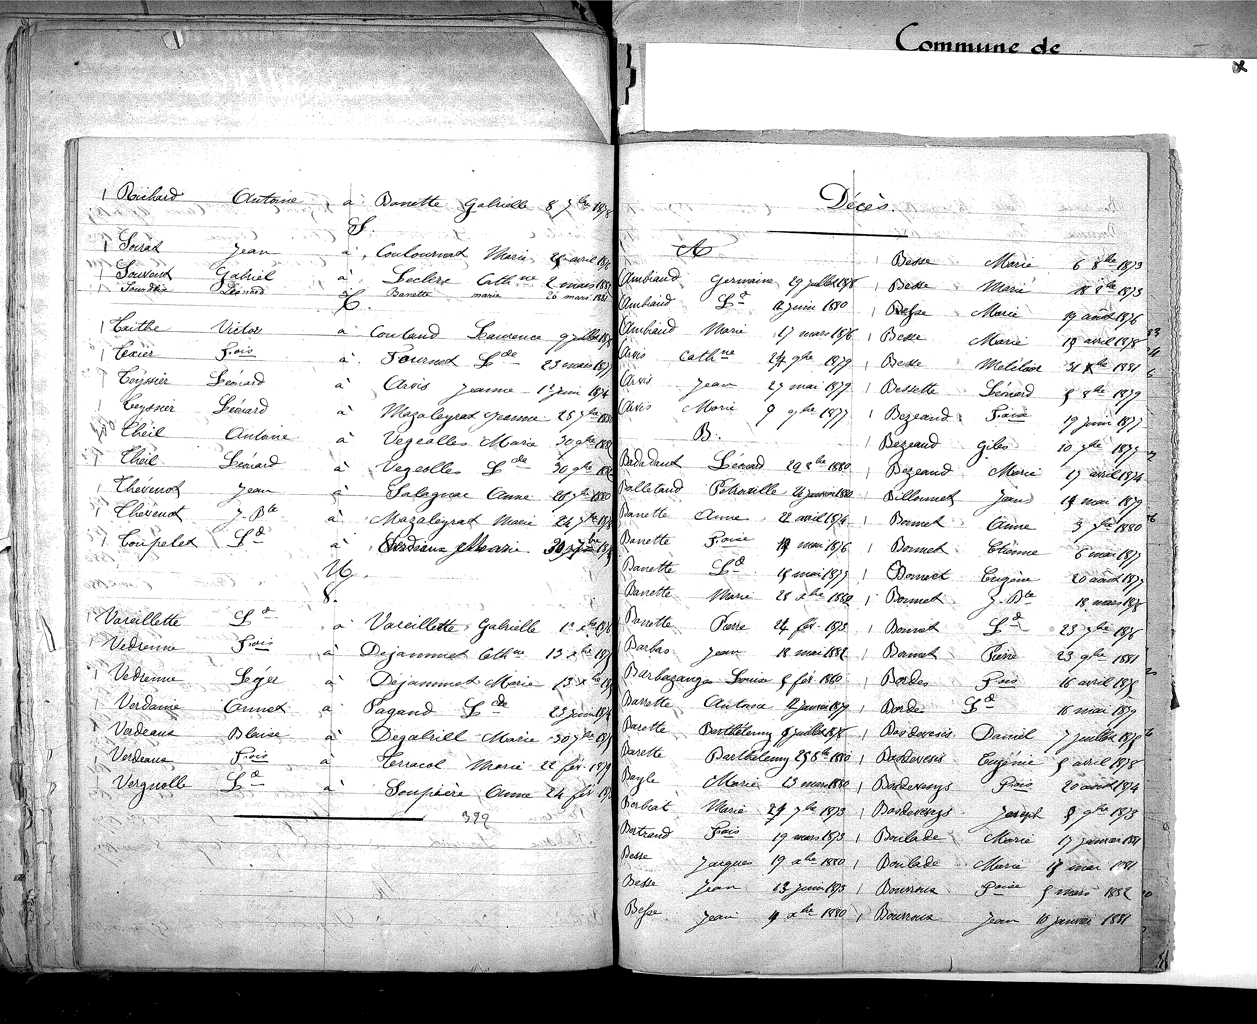 Commune de
1 Richard Antoine à Banette Gabrielle 8 7bre 1878
S.
1 Sourat Jean à Coulournat Marie 25 avril
1 Souvent Gabriel à Leclere Cathne 2 mars
1 Léonard à Banette marie 26 mars 1881
T.
1 Taithe Victor à Coutaud Laurence 9 juillet
1 Texier Fois à Fournet Lde 23 mars
1 Teyssier Léonard à Arvis Jeanne 1er Juin 1874
1 Teyssier Léonard à Mazaleyrat Jeanne 25 7bre
1 Theil Antoine à Vegeolles Marie 30 9bre
1 Theil Léonard à Vegeolles Lde 30 9bre
1 Thévenot Jean à Salagnac Anne 28 7bre 1880
1 Thévenot J. Bte à Mazaleyrat Marie 24 7bre
1 Toupelet Ld à Bordeaux Marie
U.
V.
1 Vareillette Ld à Vareillette Gabrielle 1er xbre
1 Vedrenne Fois à Dejammet Cathne 13 xbre
1 Vedrenne Léger à Dejammet Marie 13 xbre
1 Verdame Annet à Pagand Lde 23 juin
1 Verdeaux Blaise à Degabrill Marie 30 7bre
1 Verdeaux Fois à Terracol Marie 22 fév. 1879
Vergnolle Ld à Soupaire Anne 24 fév
329
Décès.
A
Ambiaud Germain 29 juillet 1878
Ambiaud Ld 12 juin 1880
Ambiaud Marie 17 mars 1876
Arvis Cathne 24 9bre 1879
Arvis Jean 27 mai 1879
Arvis Marie 9 9bre 1877
B.
Badadaut Léonard 29 8bre 1880
Balletaud Petronille 26 janvier 1880
Banette Anne 22 avril 1874
Banette Foise 19 mai 1876
Banette Ld 15 mai 1877
Banette Marie 28 xbre 1880
Banette Pierre 24 fév. 1875
Barbas Jean 18 mai 1882
Barbazange Louise 5 fév. 1880
Barrette Antoine 12 janvier 1879
Barette Berthélemy 8 juillet 1875
Barette Barthélemy 25 8bre 1880
Bayle Marie 23 mars 1880
Berbert Marie 27 7bre 1873
Bertrand Fois 19 mars 1873
Besse Jacques 19 xbre 1880
Besse Jean 13 juin 1875
Besse Jean 4 xbre 1880
1 Besse Marie 6 8bre 1873
1 Besse Marie 18 8bre 1873
1 Besse Marie 19 août 1876
1 Besse Marie 19 avril 1878
1 Besse Melchior 31 xbre 1881
1 Bessette Léonard 5 8bre 1879
1 Bezeaud Foise 19 juin 1877
1 Bezeaud Giles 10 7bre 1877
1 Bezeaud Marie 17 avril 1874
1 Billonnet Jean 14 mai 1879
1 Bonnet Anne 3 7bre 1880
1 Bonnet Etienne 6 mai 1877
1 Bonnet Eugène 20 août 1877
1 Bonnet J. Bte 18 mars
1 Bonnet Ld 23 7bre 1876
1 Bonnet Pierre 23 9bre 1881
1 Bordes Fois 16 avril 1875
1 Borde Ld 16 mai 1879
1 Bosdevesis Daniel 7 juillet 1875
1 Bosdevesis Eugénie 5 avril 1878
1 Bosdevesys Fois 20 août 1874
1 Bosdevesys Joseph 8 9bre 1873
1 Boulade Marie 17 janvier 1881
1 Boulade Marie 15 mai 1881
1 Bourroux Foise 5 mars 1882
1 Bourroux Jean 10 janvier 1881